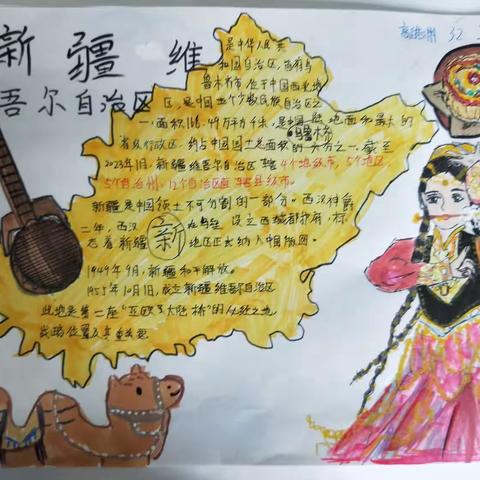 新疆维
吾尔自治区
是中华人民共
和国自治区，首府乌
鲁木齐市 位于中国西北地
区，是中国五个少数民族自治区之
一。面积166.49万平方千米，是中国陆地面积最大的
省级行政区，约占中国国土总面积的六分之一。截至
2023年1月，新疆维吾尔自治区辖4个地级市，5个地区，
5个自治州，12个自治区直辖县级市。
新疆是中国领土不可分割的一部分。西汉神爵
二年，西汉 在乌垒 设立西域都护府，标
志着新疆 新 地区正式纳入中国版图。
1949年9月，新疆和平解放。
1955年10月1日，成立新疆维吾尔自治区
此地是第二座“亚欧大陆桥”的必经之地，
战略位置及其重要